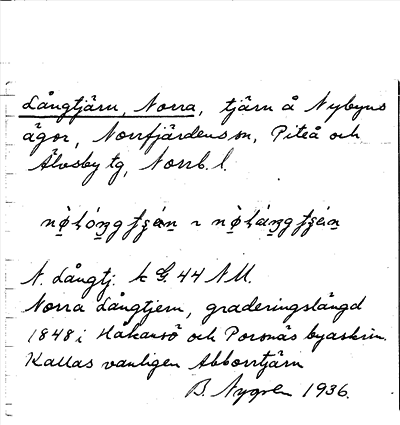 Långtjärn, Norra, tjärn å Nybyns
ägor, Norrfjärdens sn, Piteå och
Älvsby tg, Norrb. l.
N. Långtj. k G. 44 NM.
Norra Långtjern, graderingslängd
1848 i Håkansö och Porsnäs byaskrin.
Kallas vanligen Abborrtjärn
B. Nygren 1936.